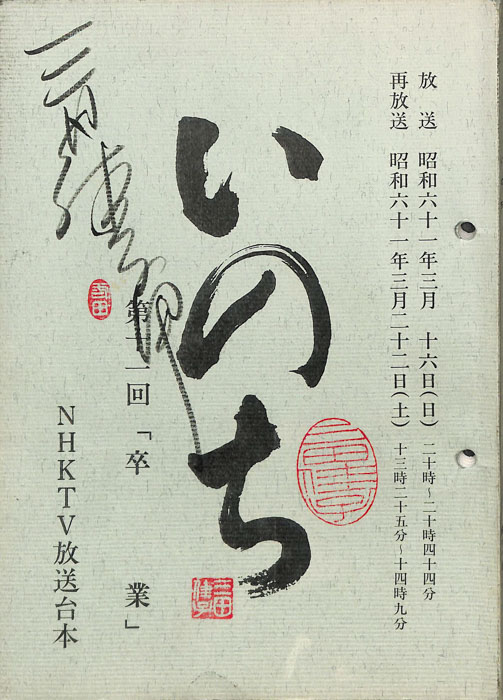 放　送　昭和六十一年三月　十六日(日)　二十時～二十時四十四分
再放送　昭和六十一年三月二十二日(土)　十三時二十五分～十四時九分
いのち
第十一回「卒　業」
NHKTV放送台本